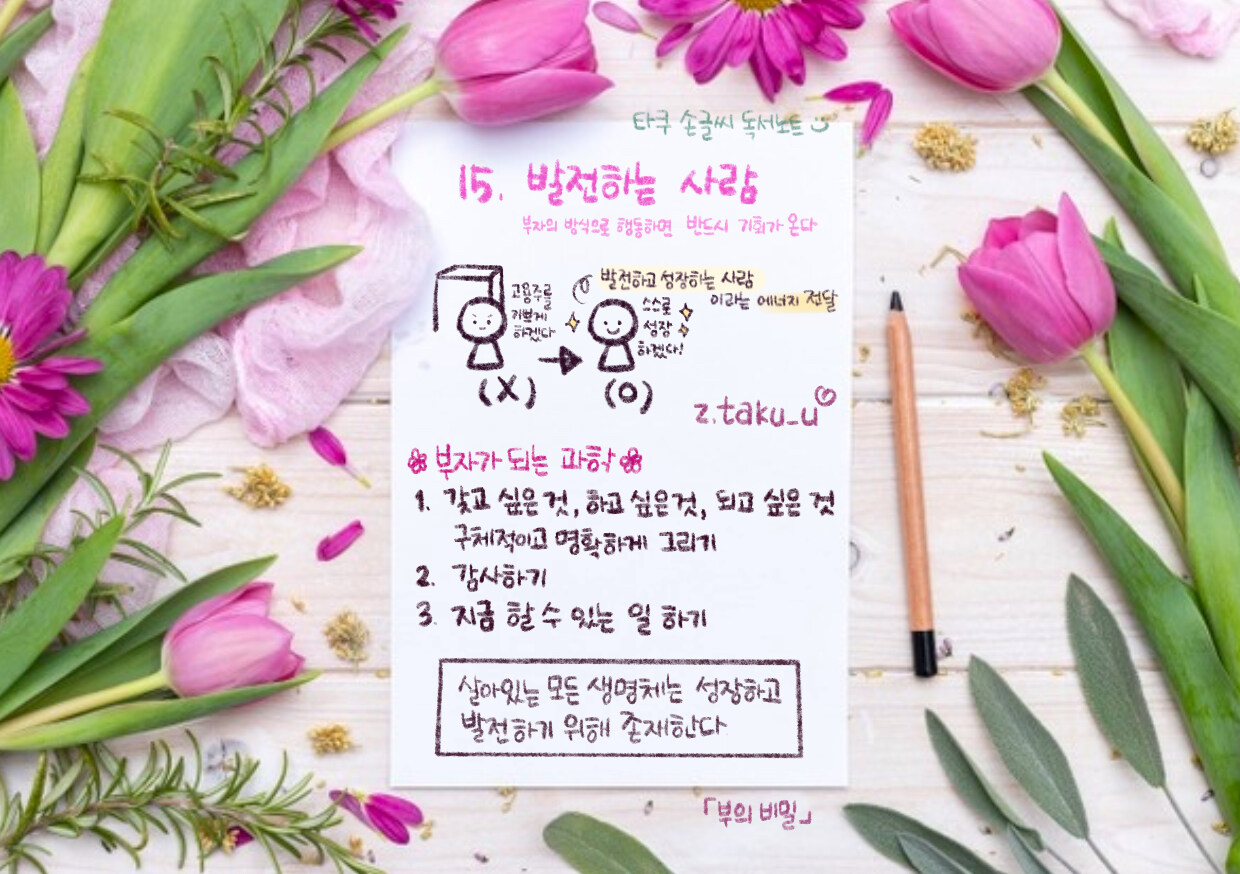 타쿠 손글씨 독서노트
15. 발전하는 사람
부자의 방식으로 행동하면 반드시 기회가 온다
고용주를
기쁘게
하겠다
(X)
발전하고 성장하는 사람
이라는 에너지 전달
스스로
성장
하겠다!
(O)
z.taku_u
부자가 되는 과학
1. 갖고 싶은 것, 하고 싶은 것, 되고 싶은 것
구체적이고 명확하게 그리기
2. 감사하기
3. 지금 할 수 있는 일 하기
살아있는 모든 생명체는 성장하고
발전하기 위해 존재한다
「부의 비밀」